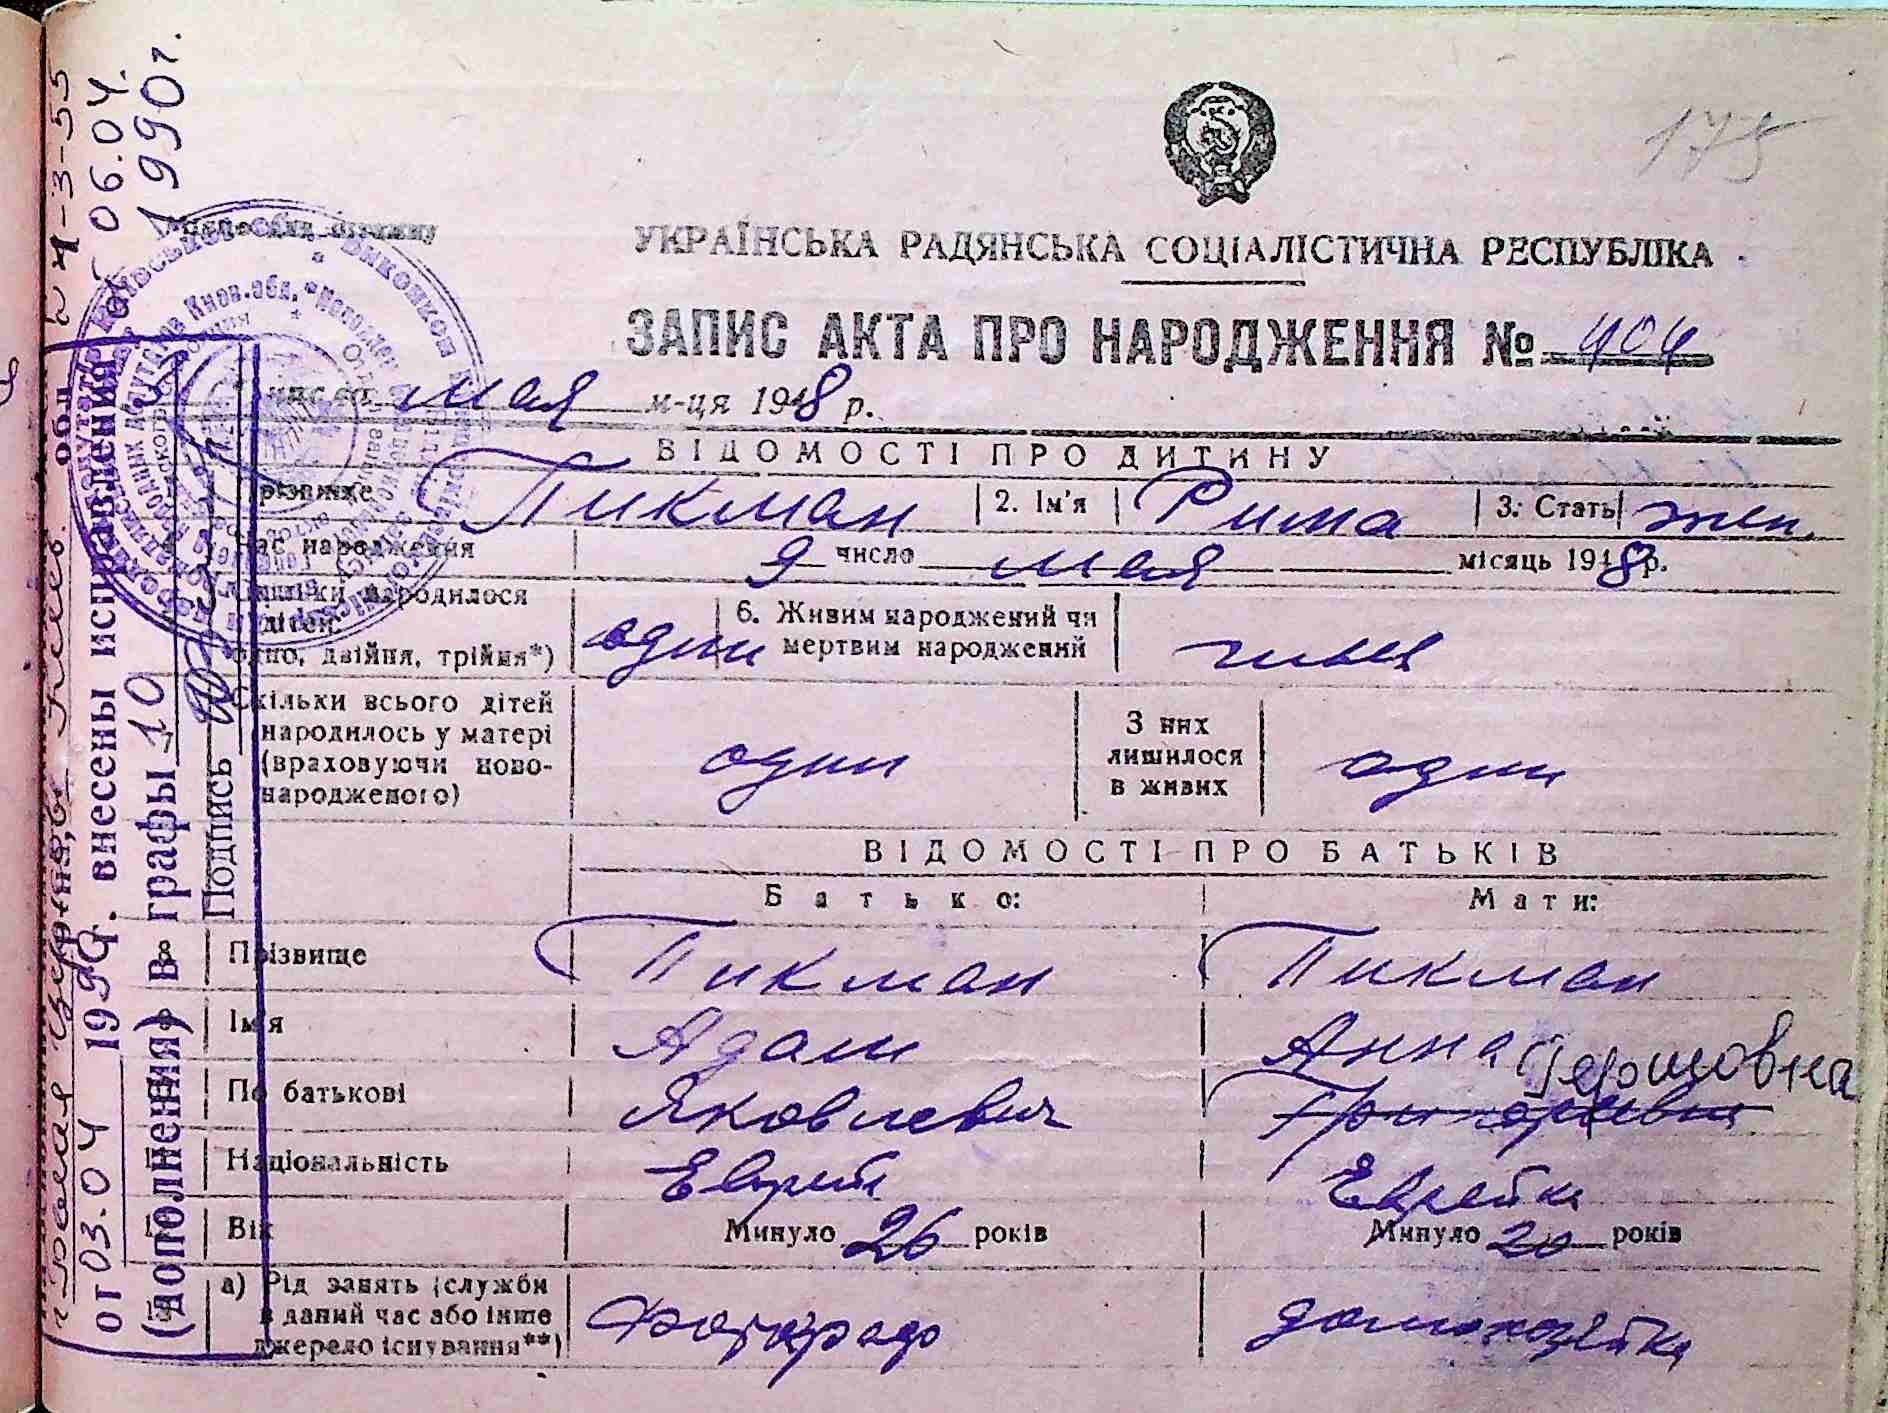 175
УКРАЇНСЬКА РАДЯНСЬКА СОЦІАЛІСТИЧНА РЕСПУБЛІКА
ЗАПИС АКТА ПРО НАРОДЖЕННЯ № 404
мая м-ця 1948 р.
ВІДОМОСТІ ПРО ДИТИНУ
Прізвище Пикман 2. Ім'я Рима 3. Стать жен.
Час народження 9 число мая місяць 1948 р.
Скільки народилося дітей: одно, двійня, трійня*) один 6. Живим народжений чи
мертвим народжений
Скільки всього дітей
народилось у матері
(враховуючи ново-
народженого) один
З них
лишилося
в живих один
ВІДОМОСТІ ПРО БАТЬКІВ
Батько: Мати:
Прізвище Пикман Пикман
Ім'я Адам Анна Гершовна
По батькові Яковлевич Григорьевна
Національність Еврей Еврейка
Вік Минуло 26 років Минуло 20 років
а) Рід занять (служби
в даний час або інше
джерело існування**) Фотограф домохозяйка
06.04.
1990г.
от 03.04 1990. внесены исправления
(дополнения) в графы 10
Подпись